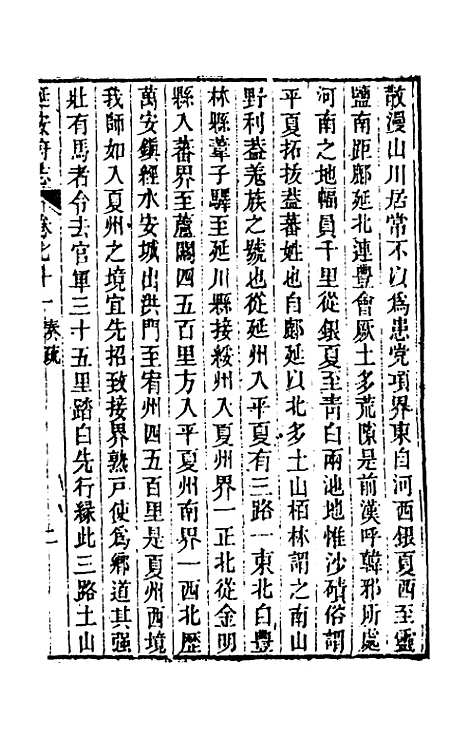 散漫山川居常不以為患党項界東自河西銀夏西至靈
鹽南距鄜延北連豐會厥土多荒隙是前漢呼韓邪所處
河南之地幅員千里從銀夏至青白兩池地惟沙磧俗謂
平夏拓拔蓋蕃姓也自鄜延以北多土山栢林謂之南山
野利蓋羗族之號也從延州入平夏有三路一東北自豐
林縣葦子驛至延川縣接綏州入夏州界一正北從金明
縣入蕃界至蘆關四五百里方入平夏州南界一西北歷
萬安鎮經永安城出洪門至宥州四五百里是夏州西境
我師如入夏州之境宜先招致接界熟戶使為鄉道其强
壯有馬者令去官軍三十五里踏白先行緣此三路土山
延安府志 卷七十一 奏疏 二